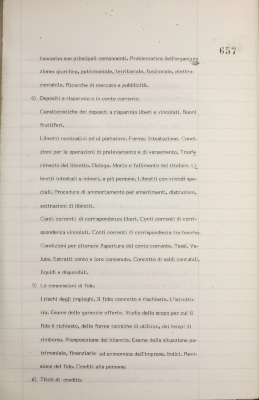 657
bancaria sue principali componenti. Problematica dell'organizza
zione: giuridica, patrimoniale, territoriale, funzionale, elettro-
contabile. Ricerche di mercato e pubblicità.
4) Depositi a risparmio e in conto corrente.
Caratteristiche dei depositi a risparmio liberi e vincolati. Buoni
fruttiferi.
Libretti nominativi ed al portatore. Forma. Intestazione. Condi-
zioni per le operazioni di prelevamento e di versamento. Trasfe
rimento del libretto. Delega. Morte o fallimento del titolare. Li
bretti intestati a minori, a più persone. Libretti con vincoli spe-
ciali. Procedura di ammortamento per smarrimenti, distruzioni,
sottrazioni di libretti.
Conti correnti di corrispondenza liberi. Conti correnti di corri-
spondenza vincolati. Conti correnti di corrispondenza tra banche.
Condizioni per ottenere l'apertura del conto corrente. Tassi. Va-
lute. Estratti conto e loro contenuto. Concetto di saldi contabili,
liquidi e disponibili.
5) La concessioni di fido.
I rischi degli impieghi. Il fido: concetto e richieste. L'istrutto-
ria. Esame delle garanzie offerte. Studio dello scopo per cui il
fido è richiesto, delle forme tecniche di utilizzo, dei tempi di
rimborso. Riesposizione del bilancio. Esame della situazione pa-
trimoniale, finanziaria ed economica dell'impresa. Indici. Revi-
sione del fido. Crediti alla persona.
6) Titoli di credito.